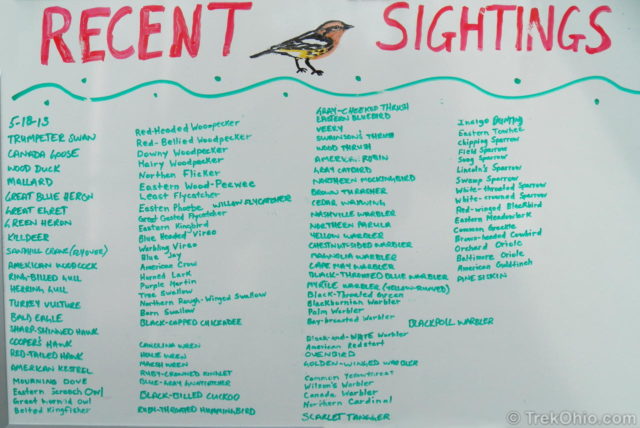 RECENT SIGHTINGS
5-18-13
TRUMPETER SWAN
CANADA GOOSE
WOOD DUCK
MALLARD
GREAT BLUE HERON
GREAT EGRET
GREEN HERON
KILLDEER
SANDHILL CRANE (FLYOVER)
AMERICAN WOODCOCK
RING-BILLED GULL
HERRING GULL
TURKEY VULTURE
BALD EAGLE
SHARP-SHINNED HAWK
COOPER'S HAWK
RED-TAILED HAWK
AMERICAN KESTREL
MOURNING DOVE
Eastern Screech Owl
Great horned Owl
Belted Kingfisher
Red-Headed Woodpecker
Red-Bellied Woodpecker
Downy Woodpecker
Hairy Woodpecker
Northern Flicker
Eastern Wood-Peewee
Least Flycatcher
Eastern Phoebe WILLOW FLYCATCHER
Great Crested Flycatcher
Eastern Kingbird
Blue Headed Vireo
Warbling Vireo
Blue Jay
American Crow
Horned Lark
Purple Martin
Tree Swallow
Northern Rough-Winged Swallow
Barn Swallow
BLACK-CAPPED CHICKADEE
CAROLINA WREN
HOUSE WREN
MARSH WREN
RUBY-CROWNED KINGLET
BLUE-GRAY GNATCATCHER
BLACK-BILLED CUCKOO
RUBY-THROATED HUMMINGBIRD
GRAY-CHEEKED THRUSH
EASTERN BLUEBIRD
VEERY
SWAINSON'S THRUSH
WOOD THRUSH
AMERICAN ROBIN
GRAY CATBIRD
NORTHERN MOCKINGBIRD
BROWN THRASHER
CEDAR WAXWING
NASHVILLE WARBLER
NORTHERN PARULA
YELLOW WARBLER
CHESTNUT-SIDED WARBLER
MAGNOLIA WARBLER
CAPE MAY WARBLER
BLACK-THROATED BLUE WARBLER
MYRTLE WARBLER (YELLOW-RUMPED)
Black-Throated Green
Blackburnian Warbler
Palm Warbler
Bay-breasted Warbler BLACKPOLL WARBLER
Black-and-WHITE Warbler
American Redstart
OVENBIRD
GOLDEN-WINGED WARBLER
Common Yellowthroat
Wilson's Warbler
Canada Warbler
Northern Cardinal
SCARLET TANAGER
Indigo Bunting
Eastern Towhee
Chipping Sparrow
Field Sparrow
Song Sparrow
Lincoln's Sparrow
Swamp Sparrow
White-throated Sparrow
White-crowned Sparrow
Red-winged Blackbird
Eastern Meadowlark
Common Grackle
Brown-headed Cowbird
Orchard Oriole
Baltimore Oriole
American Goldfinch
PINE SISKIN
© TrekOhio.com